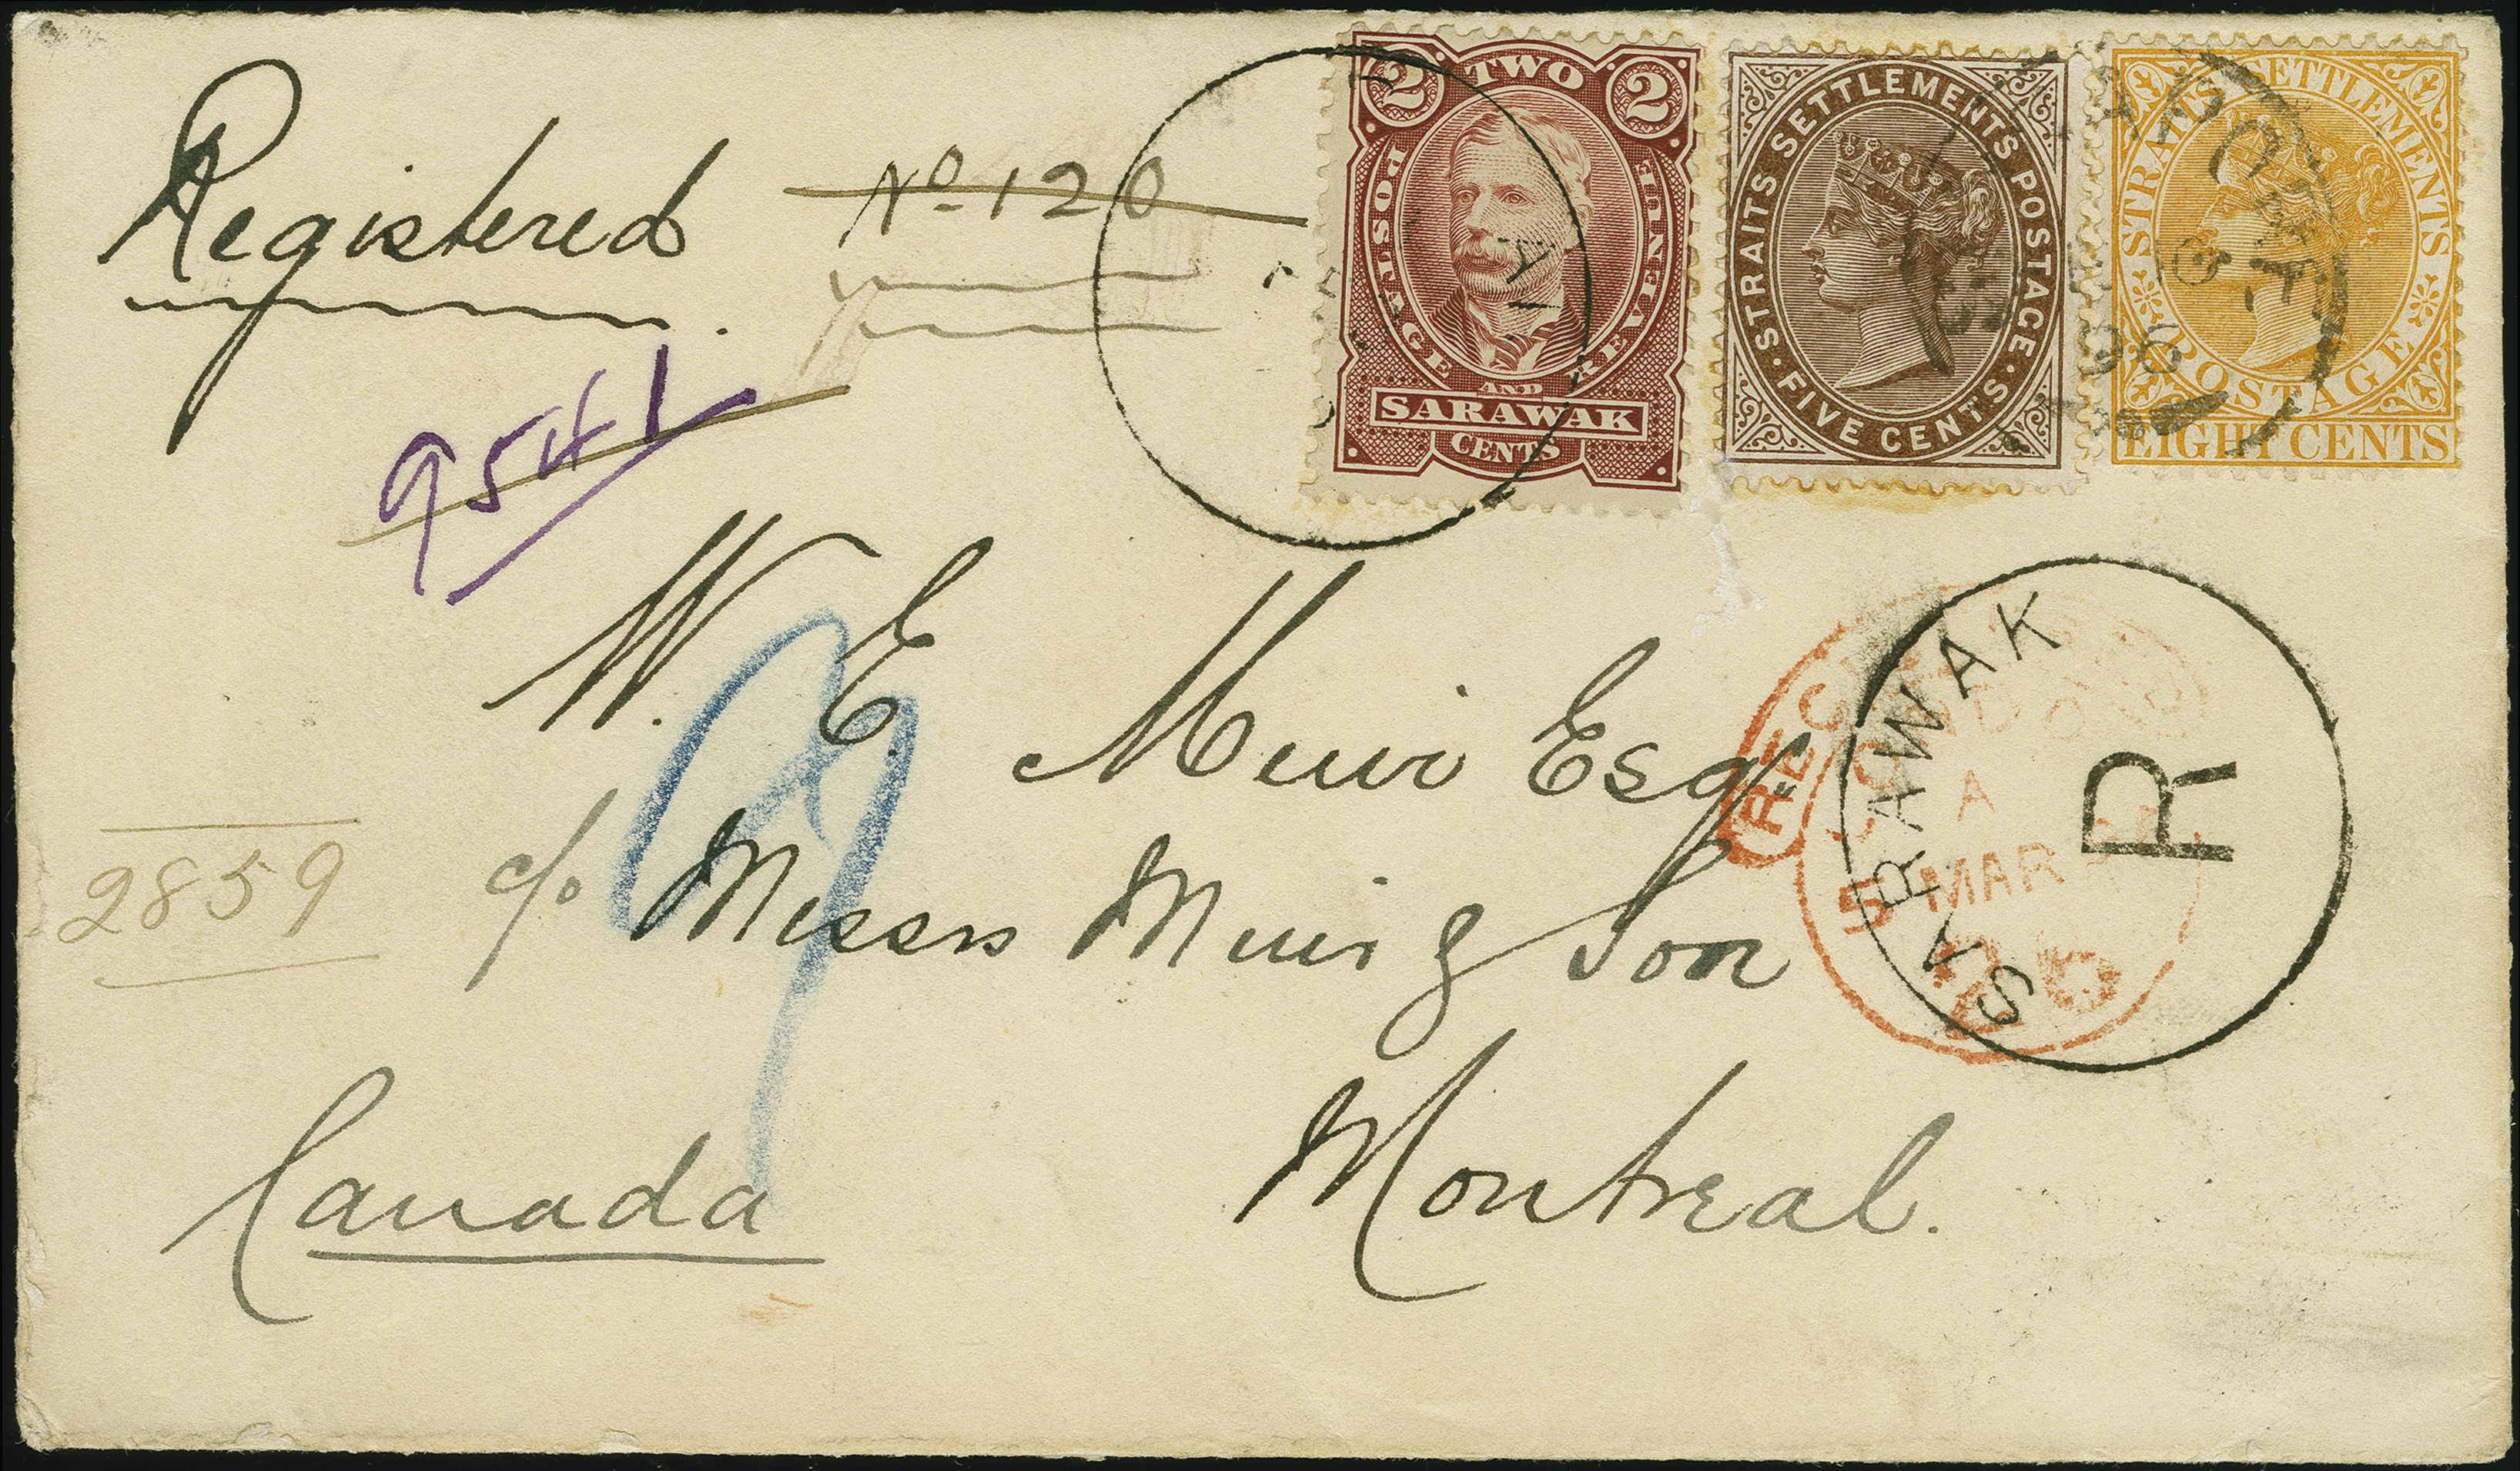 Registered
No 120
2 TWO 2
POSTAGE AND REVENUE
SARAWAK
CENTS
STRAITS SETTLEMENTS POSTAGE
FIVE CENTS
STRAITS SETTLEMENTS
POSTAGE
EIGHT CENTS
96
9541
W. E. Muir Esq
c/o Messrs Muir & Son
Montreal.
Canada
2859
9
SARAWAK
R
LONDON
A
5 MAR
96